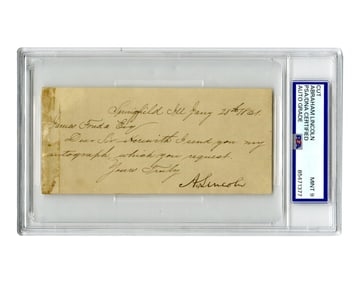 Springfield Ills Jany 28th 1861
James Sir
Dear Sir Herewith I send you my
autograph, which you request.
Yours Truly
A. Lincoln
CUT
ABRAHAM LINCOLN
PSA/DNA CERTIFIED
AUTO GRADE
MINT 9
85471377
PSA